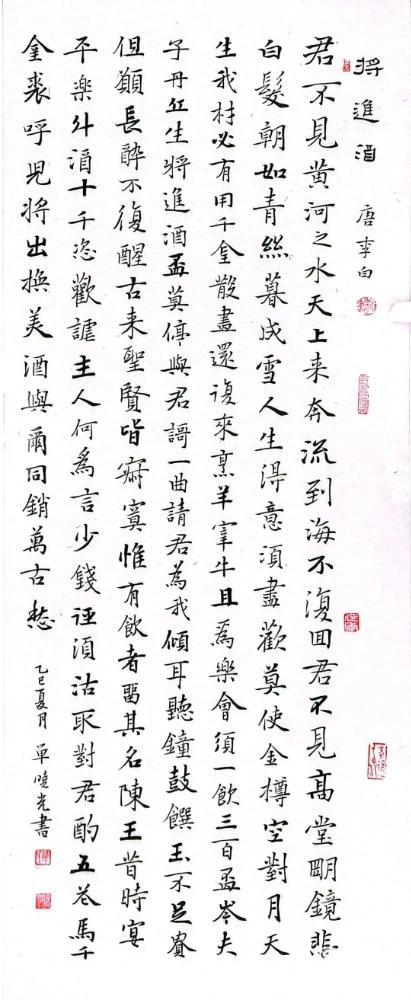 將進酒 唐李白
君不見黄河之水天上来奔流到海不復回君不見高堂朙鏡悲
白髮朝如青絲暮成雪人生得意須盡歡莫使金樽空對月天
生我材必有用千金散盡還復來烹羊宰牛且爲樂會須一飲三百盃岑夫
子丹丘生將進酒盃莫停與君謌一曲請君為我傾耳聽鐘鼓饌玉不足貴
但願長醉不復醒古来聖賢皆寂寞惟有飲者留其名陳王昔時宴
平樂斗酒十千恣歡謔主人何爲言少錢逕須沽取對君酌五花馬千
金裘呼児將出換美酒與爾同銷萬古愁
乙巳夏月單曉光書